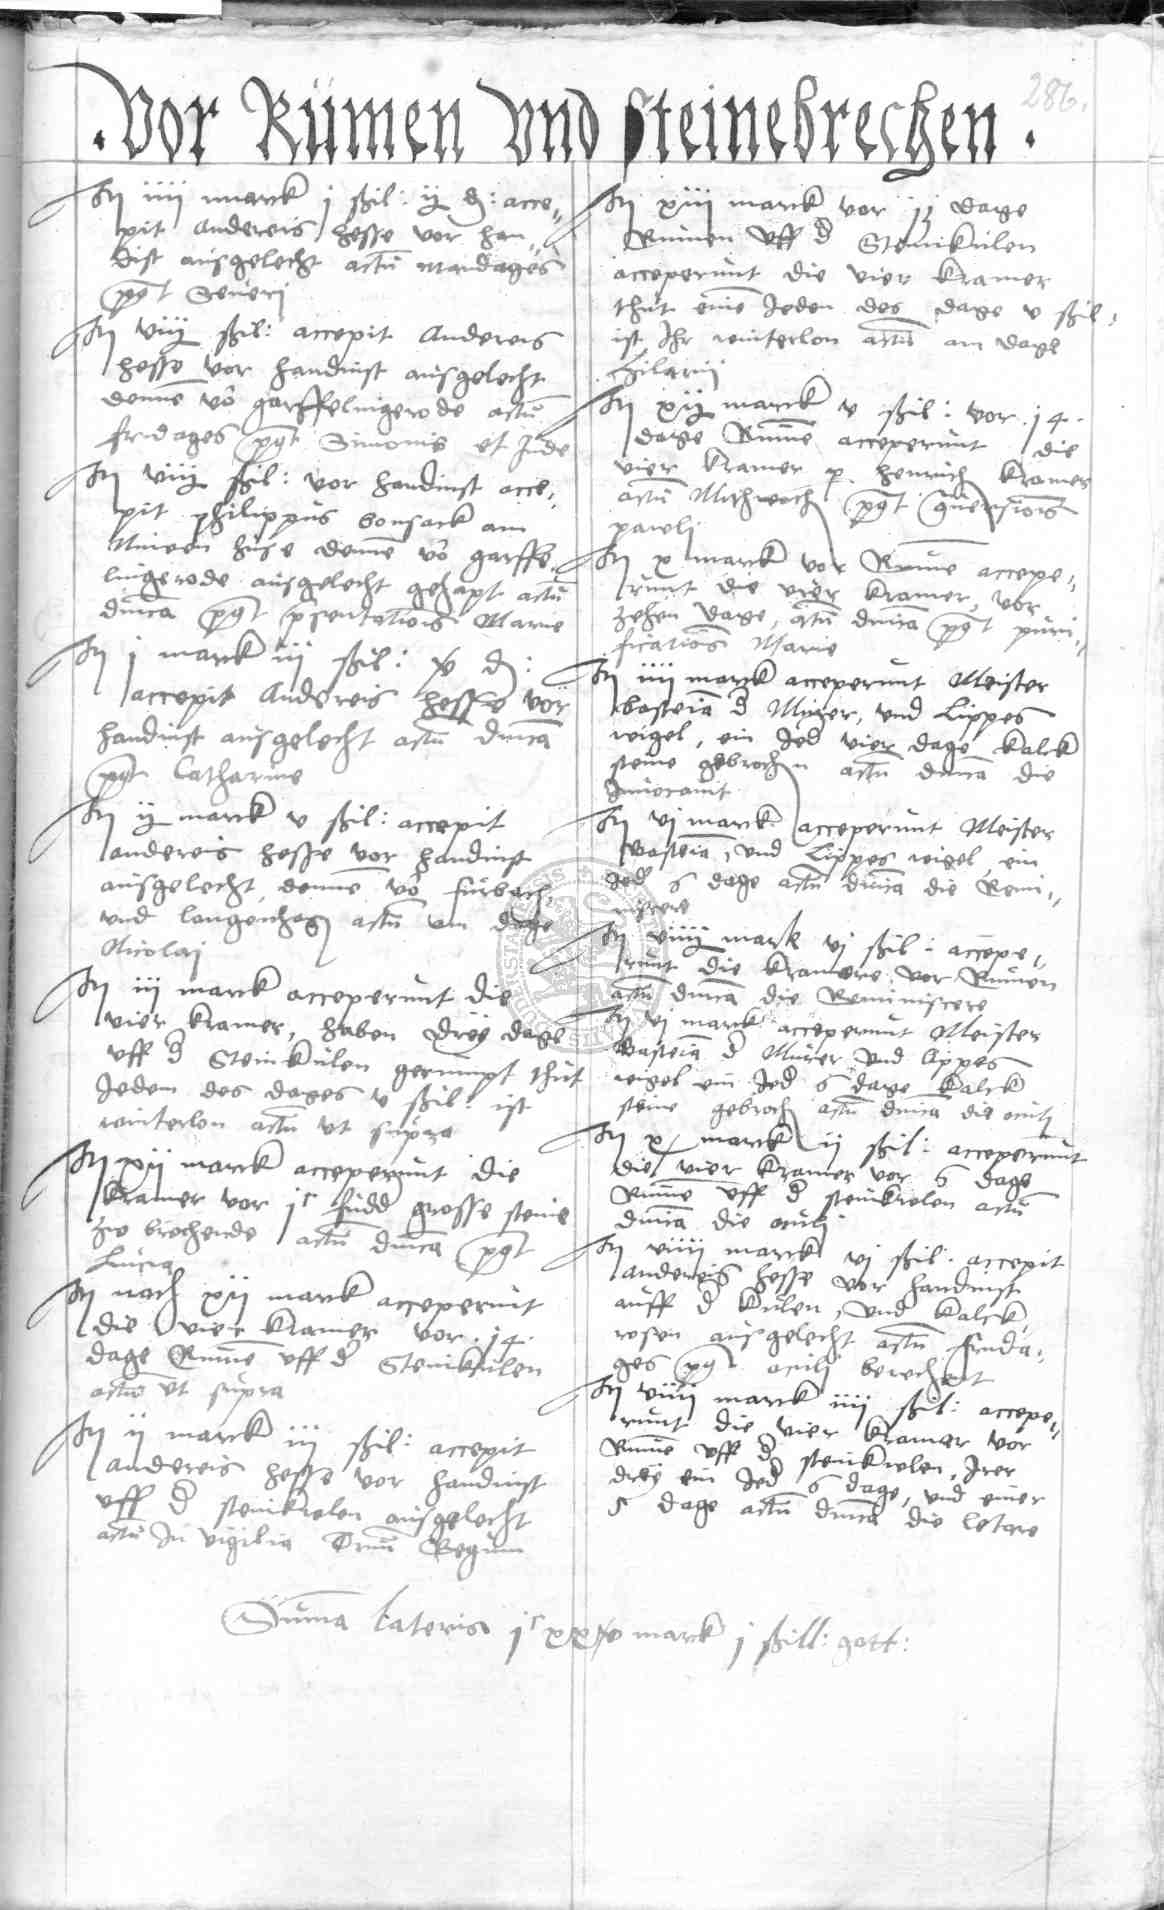 286.
. Vor Rümen vnd steinebrechen .
Itꝫ iiii marck j ßil: ij ₰: acce„
pit Andereis Hesse vor han„
dist ausgelecht actū mandages
pꝰt Seueri
Itꝫ viij ßil: accepit Andereis
Hesse vor handinst ausgelecht
denne vō garffelingerode actū
fridages pꝰt Simonis et Jude
Itꝫ viij ßil: vor handinst acce„
pit philippus bonsack am
Nuwen huse denne vō garffe„
lingerode ausgelecht gehapt actū
dnīca pꝰt pn̄sentatiōis Marie
Itꝫ j marck iii ßil: ₰:
accepit Andereis Hesse vor
handinst ausgelecht actū dnīca
pꝰt Catharine
Itꝫ ij marck v ßil: accepit
andereis Hesse vor handinst
ausgelecht denne vō furbach
vnd langenhog actū am dage
Nicolai
Itꝫ iii marck acceperunt die
vier kramer, haben drey dage
vff d Steinkulen gerumpt thut
Jeden des dages v ßil: ist
winterlon actū vt supra
Itꝫ xii marck acceperunt die
kramer vor jᶜ fudd grosse steine
zu brechende actū dnīca pꝰt
Lucia
Itꝫ noch xii marck acceperunt
die vier kramer vor .14.
dage Rumē vff d Steinkulen
actū vt supra
Itꝫ ii marck iii ßil: accepit
andereis Hesse vor handinst
vff d steinkulen ausgelecht
actū In vigilia Triū Regum
Itꝫ xiii marck vor dage
Rumen vff d Steinkulen
acceperunt die vier kramer
thut eine Jeden des dage v ßil„
ist Ihr winterlon actū am dage
Hilarii
Itꝫ xij marck v ßil: vor .14.
dage Rumē acceperunt die
vier kramer p. Henrich kramer
actū Mithwoch pꝰt ꝯuersiōis
pauli
Itꝫ x marck vor Rumē accepe„
runt die vier kramer, vor
zehen dage, actū dnīca pꝰt puri„
ficatiōis Marie
Itꝫ iiii marck acceperunt Meister
basteiā d Murer, vnd Lippes
weigel, ein Jed vier dage kalck
steine gebrochen actū dnīca die
Inuocauit
Itꝫ vj marck acceperunt Meister
Basteiā, vnd Lippes weigel ein
Jed 6 dage actū dnīca die Remi„
niscere
Itꝫ viiij mark vj ßil: accepe„
runt die kramere vor Rumen
actū dnīca die Reminiscere
Itꝫ vj marck acceperunt Meister
Basteiā d Murer vnd Lippes
weigel ein Jed 6 dage kalck
steine gebroch actū dnīca die oculj
Itꝫ x marck ii ßil: acceperunt
die vier kramer vor 6 dage
Rumē vff d steinkulen actū
dnīca die oculj
Itꝫ viiii marck vj ßil: accepit
Andereis Hesse vor handinst
auff d kulen, vnd kalck„
rosen ausgelecht actū frida„
ges pꝰt oculj berechent
Itꝫ viiii marck iiii ßil: accepe„
runt die vier kramer vor
Rumē vff d steinkulen, Irer
drey ein Jed 6 dage, vnd einer
5 dage actū dnīca die letare
Suma lateris jᶜ marck j ßill: gott: